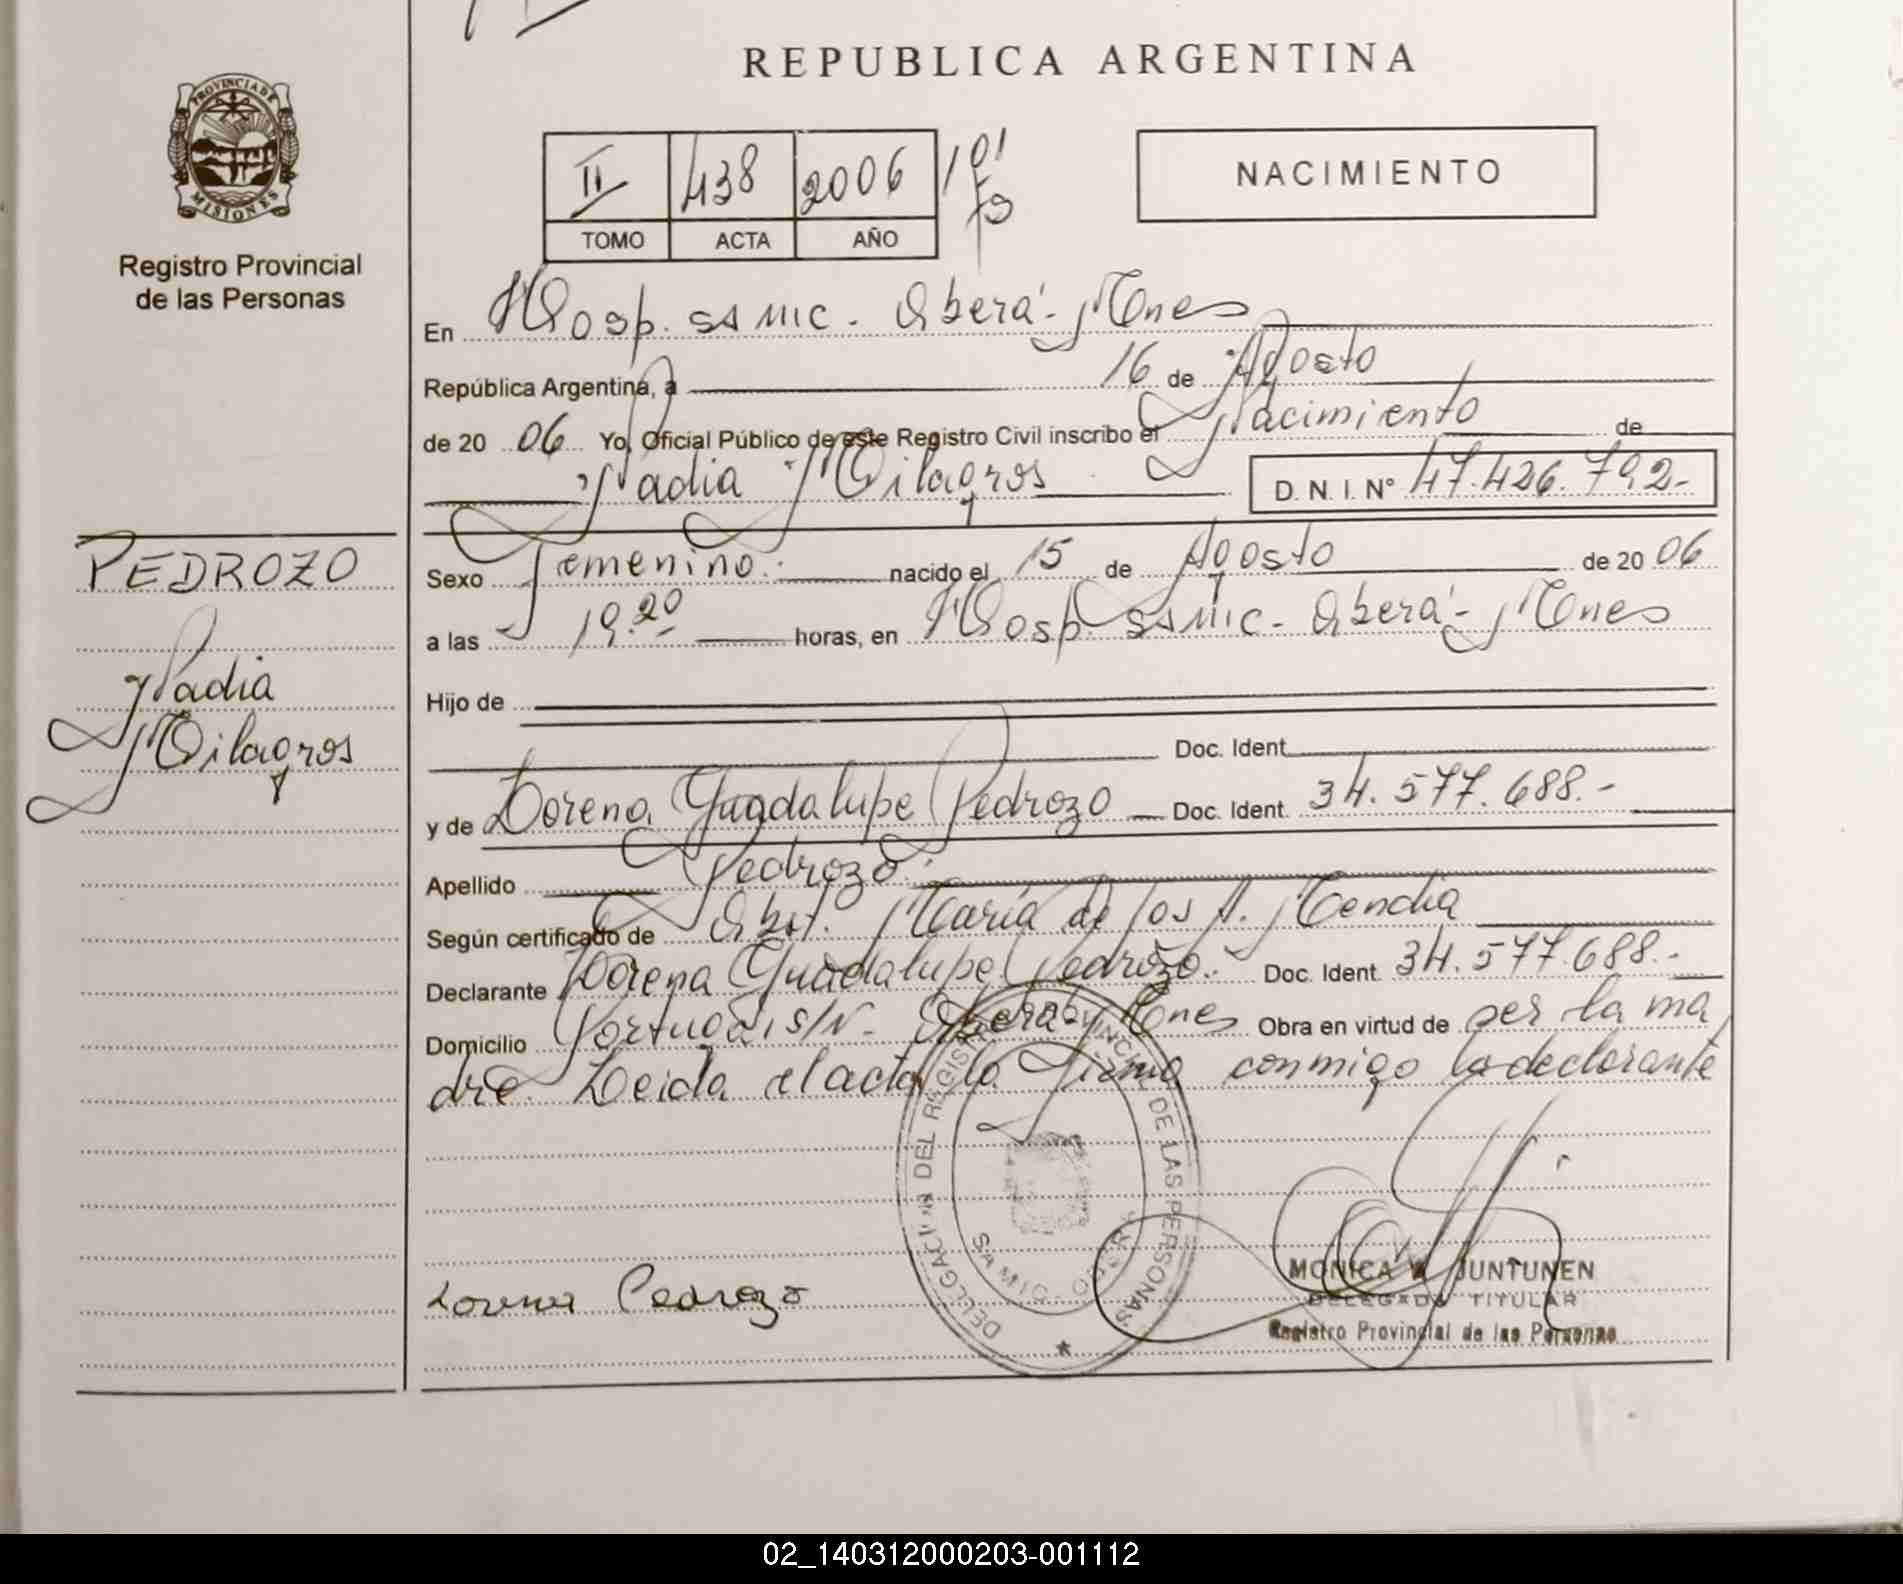 REPUBLICA ARGENTINA
PROVINCIA DE MISIONES
Registro Provincial
de las Personas
II 438 2006 101
TOMO ACTA AÑO
NACIMIENTO
En Hosp. SAMIC - Oberá - Mnes
República Argentina, a 16 de Agosto
de 2006 Yo, Oficial Público de este Registro Civil inscribo el Nacimiento de
Nadia Milagros D. N. I. Nº 47.426.792.-
PEDROZO
Nadia
Milagros
Sexo Femenino.- nacido el 15 de Agosto de 2006
a las 19.20 horas, en Hosp. SAMIC - Oberá - Mnes
Hijo de
Doc. Ident.
y de Lorena Guadalupe Pedrozo Doc. Ident. 34.577.688.-
Apellido Pedrozo.
Según certificado de Obst. María de los A. Mendia
Declarante Lorena Guadalupe Pedrozo. Doc. Ident. 34.577.688.-
Domicilio Portugal S/N - Oberá - Mnes Obra en virtud de ser la ma
dre. Leida el acta la firma conmigo la declarante
DELEGACION DEL REGISTRO PROVINCIAL DE LAS PERSONAS
SAMIC - OBERA
Lorena Pedrozo
MONICA JUNTUNEN
DELEGADA TITULAR
Registro Provincial de las Personas
02_140312000203-001112